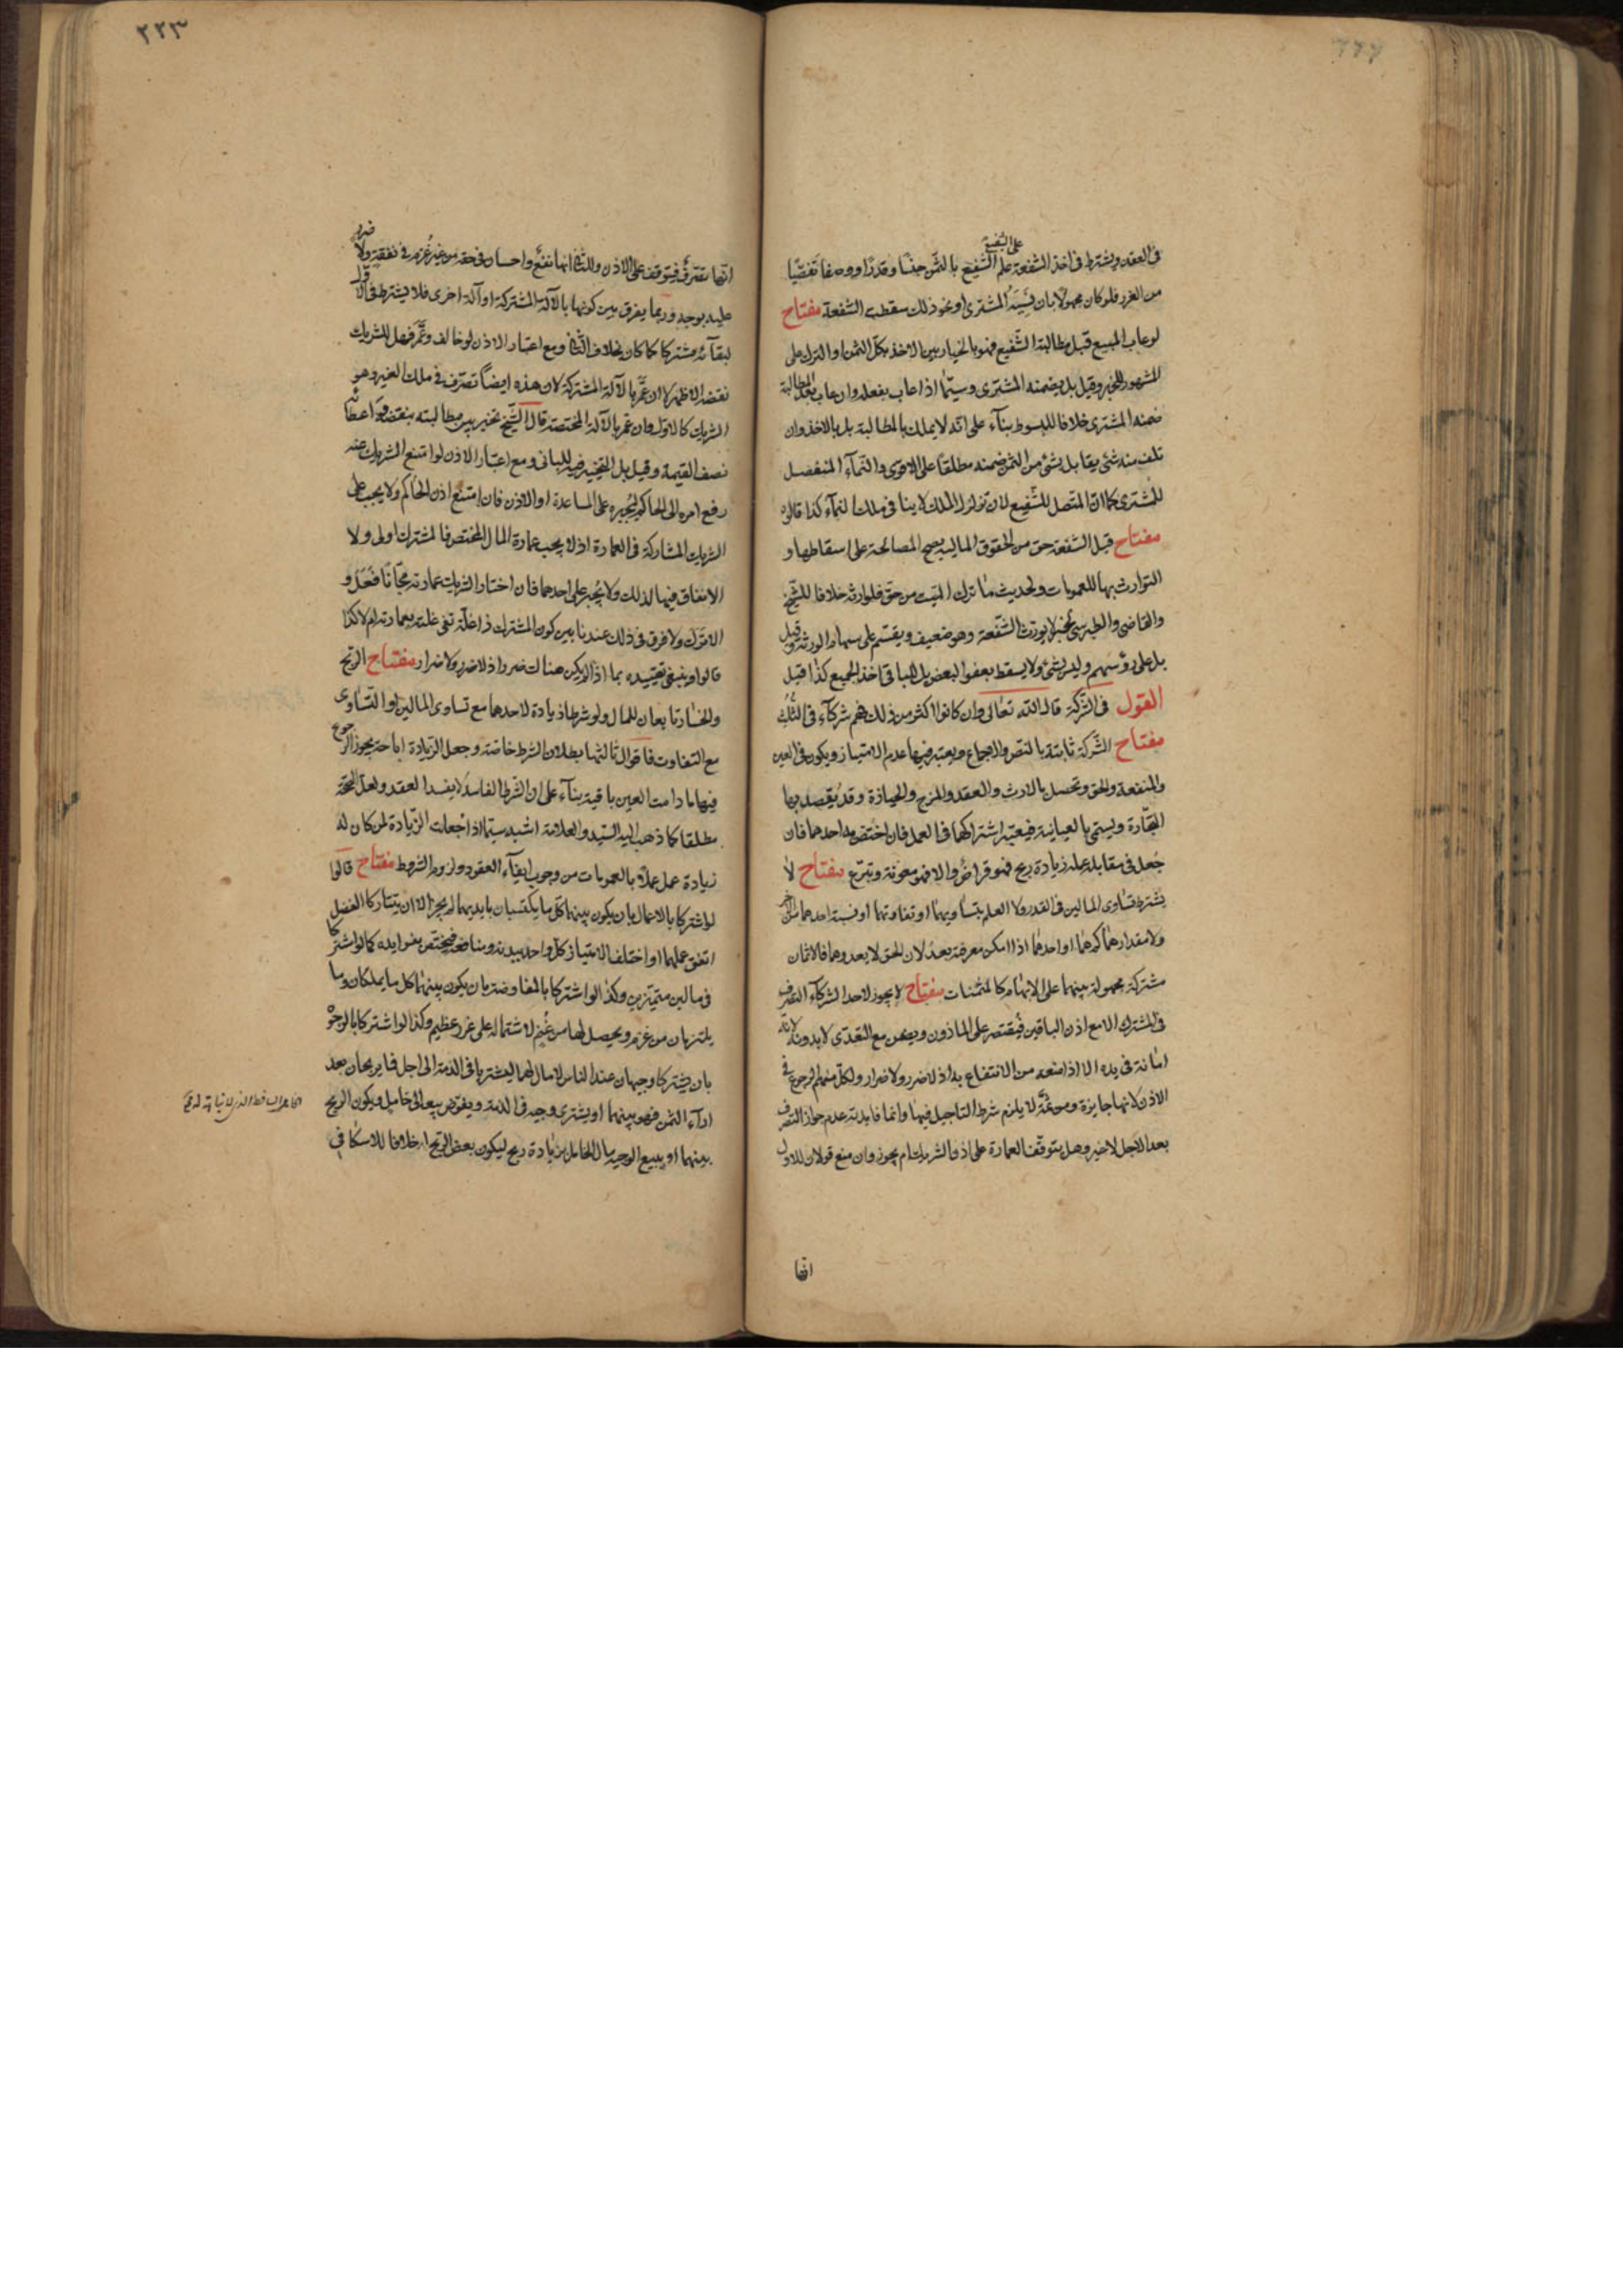 في العقد ويشترط في اخذ الشفعة علم الشفيع بالثمن جنسا وقدرا ووصفا تفصّيا
من الغرر فلو كان مجهولا بان ينسيه المشتري او نحو ذلك سقطت الشفعة مفتاح
لو عاب المبيع قبل مطالبة الشفيع فهو بالخيار بين الاخذ بكل الثمن او الترك على
المشهور للخبر وقيل بل يضمنه المشتري وسيّما اذا عاب بفعله وان عاب بعد المطالبة
ضمنه المشتري خلافا للمبسوط بناء على انه لا يملك بالمطالبة بل بالاخذ وان
تلف منه شئ يقابل بشئ من الثمن ضمنه مطلقا على الاقوى والنمآء المنفصل
للمشتري كما ان المتصل للشفيع لان تزلزل الملك لا ينافي ملك النمآء كذا قالوه
مفتاح قيل الشفعة حق من الحقوق المالية يصح المصالحة على اسقاطها و
التوارث بها للعمومات ولحديث ما ترك الميت من حق فلوارثه خلافا للشيخ
والقاضي والطبرسي لخبر لا يورث الشفعة وهو ضعيف ويقسم على سهام الورثة وقيل
بل على رؤسهم وليس بشئ ولا يسقط بعفو البعض بل للباقي اخذ الجميع كذا قيل
القول في الشركة قال الله تعالى وان كانوا اكثر من ذلك فهم شركآء في الثلث
مفتاح الشركة ثابتة بالنص والاجماع ويعتبر فيها عدم الامتياز ويكون في العين
والمنفعة والحق وتحصل بالارث والعقد والمزج والحيازة وقد يقصد بها
التجارة ويسمى بالعنانية فيعتبر اشتراكهما في العمل فان اختص به احدهما فان
جعل في مقابلة عمله زيادة ربح فهو قراض والا فهو معونة وتبرع مفتاح لا
يشترط تساوي المالين في القدر ولا العلم بتساويهما او تفاوتهما او نسبة احدهما من الاخر
ولا مقدارهما كلاهما او احدهما اذا امكن معرفته بعد لان الحق لا يعدوهما فالاثمان
مشتركة مجهولة بينهما على الابهام كالمثمنات مفتاح لا يجوز لاحد الشركآء التصرف
في المشترك الا مع اذن الباقين فيقتصر على الماذون ويضمن مع التعدي لا بدونه لانه
امانة في يده الا اذا منعه من الانتفاع به اذ لا ضرر ولا ضرار ولكل منهم الرجوع في
الاذن لانها جايزة ومن ثمة لا يلزم شرط التاجيل فيها وانما فايدته عدم جواز التصرف
بعد الاجل لا غير وهل يتوقف العمارة على اذن الشريك ام يجوز وان منع قولان للاول
انها
انها تصرف فيتوقف على الاذن وللثاني انها نفع واحسان في حقه من غير غرم في نفقته ولا ضرر
عليه بوجه وربما يفرق بين كونها بالآلة المشتركة او آلة اخرى فلا يشترط في الاول
لبقآئه مشتركا كما كان بخلاف الثاني ومع اعتبار الاذن لو خالف وعمّر فهل للشريك
نقضه الاظهر لا ان عمّر بالآلة المشتركة لان هذه ايضا تصرف في ملك الغير وهو
الشريك كالاول وان عمّر بالآلة المختصة قال الشيخ تخير بين مطالبته بنقضه واعطآئه
نصف القيمة وقيل بل التخيير فيه للباني ومع اعتبار الاذن لو امتنع الشريك عنه
رفع امره الى الحاكم ليجبره على المساعدة او الاذن فان امتنع اذن الحاكم ولا يجب على
الشريك المشاركة في العمارة اذ لا يجب عمارة المال المختص فالمشترك اولى ولا
الانفاق فيها لذلك ولا يجبر على احدهما فان اختار الشريك عمارته مجانا فعل و
الا ترك ولا فرق في ذلك عندنا بين كون المشترك ذا غلة تفي غلته بعمارته ام لا كذا
قالوا وينبغي تقييده بما اذا لم يكن هناك ضرر اذ لا ضرر ولا ضرار مفتاح الربح
والخسارة تابعان للمال ولو شرطا زيادة لاحدهما مع تساوي المالين او التساوي
مع التفاوت فاقوال ثالثها بطلان الشرط خاصة وجعل الزيادة اباحة يجوز الرجوع
فيها ما دامت العين باقية بناء على ان الشرط الفاسد لا يفسد العقد ولعل الصحة
مطلقا كما ذهب اليه السيد والعلامة اشبه سيّما اذا جعلت الزيادة لمن كان له
زيادة عمل عملا بالعمومات من وجوب ايفآء العقود ولزوم الشروط مفتاح قالوا
لو اشتركا بالاعمال بان يكون بينهما كل ما يكتسبان بايديهما لم يجز الا ان يتتاركا الفضل
اتفق عملهما او اختلف لامتياز كل واحد ببدنه ومنافعه فيختص بفوايده كما لو اشتركا
في مالين متميزين وكذا لو اشتركا بالمفاوضة بان يكون بينهما كل ما يملكان وما
يلتزمان من غرم ويحصل لهما من غنم لاشتماله على غرر عظيم وكذا لو اشتركا بالوجوه
بان يشترك وجيهان عند الناس لا مال لهما ليشتريا في الذمة الى اجل فما يربحان بعد
ادآء الثمن فهو بينهما او يشتري وجيه في الذمة ويفوض بيعه الى خامل ويكون الربح
بينهما او يبيع الوجيه مال الخامل بزيادة ربح ليكون بعض الربح له خلافا للاسكافي